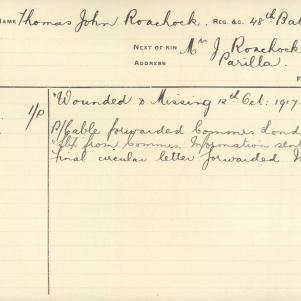 NAME Thomas John Roachock. REG. &C. 48th Bat
NEXT OF KIN Mrs J Roachock
ADDRESS Parilla.
1/P "Wounded & Missing 12th Oct: 1917.
P/Cable forwarded Commrs Lond
from Commrs Information sent
Final circular letter forwarded